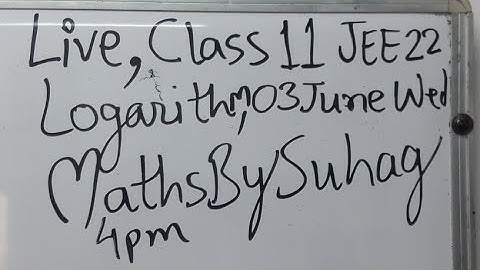 Live, Class 11 JEE22
Logarithm, 03 June Wed
MathsBySuhag
4pm